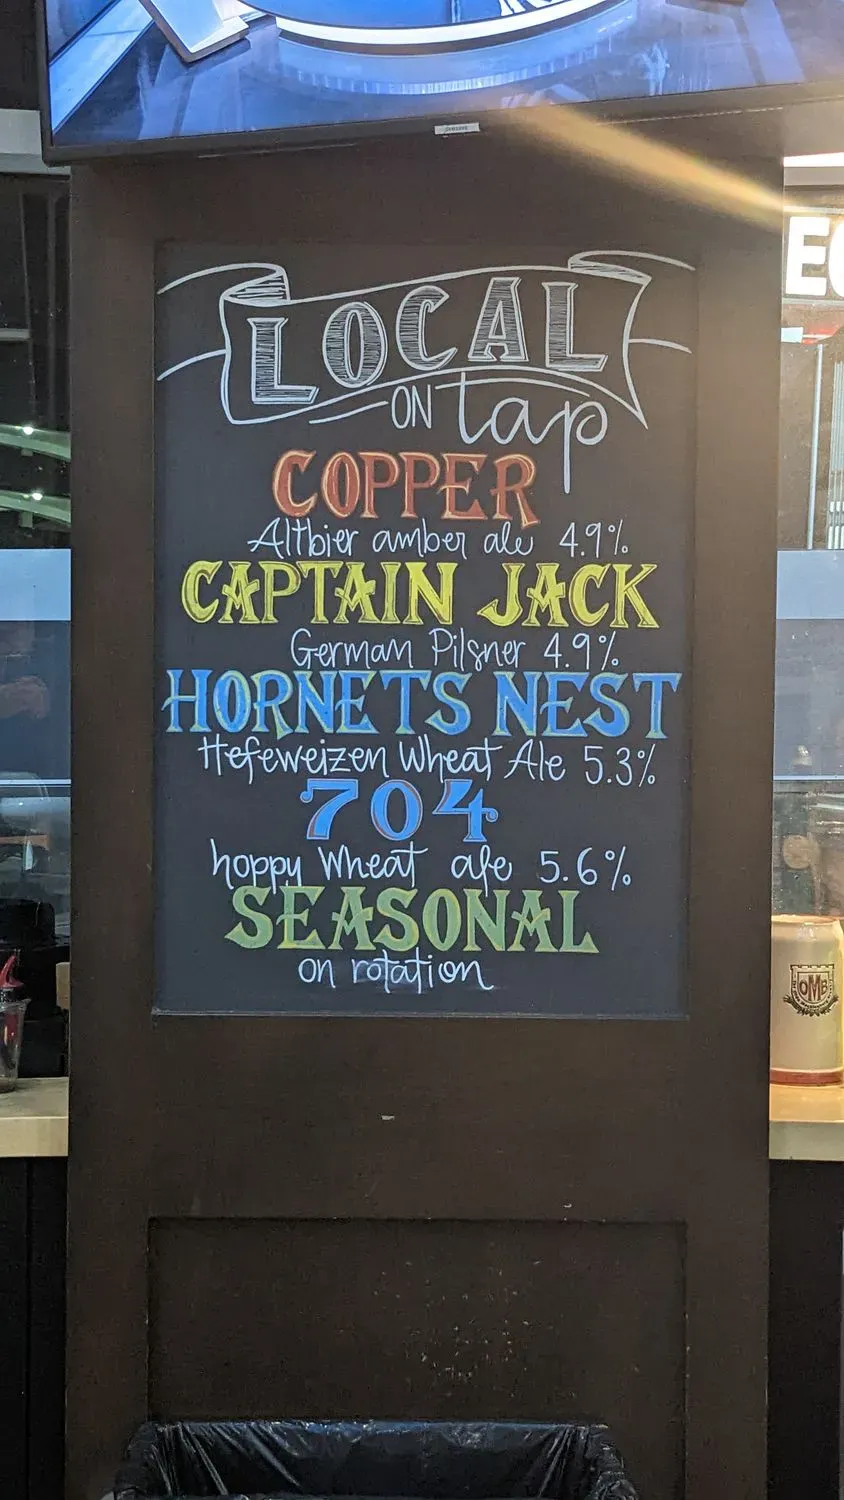 SAMSUNG
EC
LOCAL
ON tap
COPPER
Altbier amber ale 4.9%
CAPTAIN JACK
German Pilsner 4.9%
HORNETS NEST
Hefeweizen Wheat Ale 5.3%
704
hoppy Wheat ale 5.6%
SEASONAL
on rotation
OMB